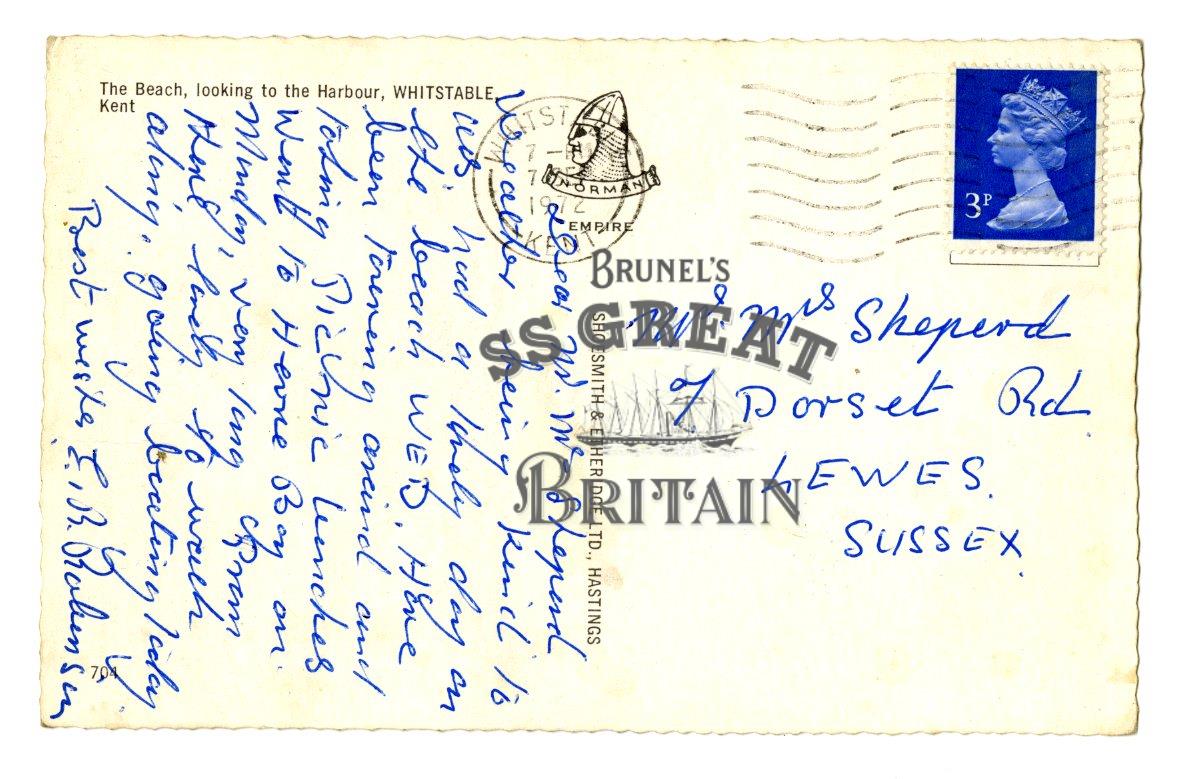 The Beach, looking to the Harbour, WHITSTABLE,
Kent
Dear Mr. Mrs Sheperd
Weather being kind to
us had a lovely day on
the beach WED, Have
been touring around and
taking Picknic lunches
Went to Herne Bay on.
Munday, very long Prom
lovely to walk
along. going boating today
Best wishes E. R. Robinson
704
SHOESMITH & ETHERIDGE LTD., HASTINGS
WHITST
7
1972
KENT
NORMAN
EMPIRE
3P
Mr & Mrs Sheperd
Dorset Rd.
LEWES.
SUSSEX.
BRUNEL'S
SS GREAT
BRITAIN